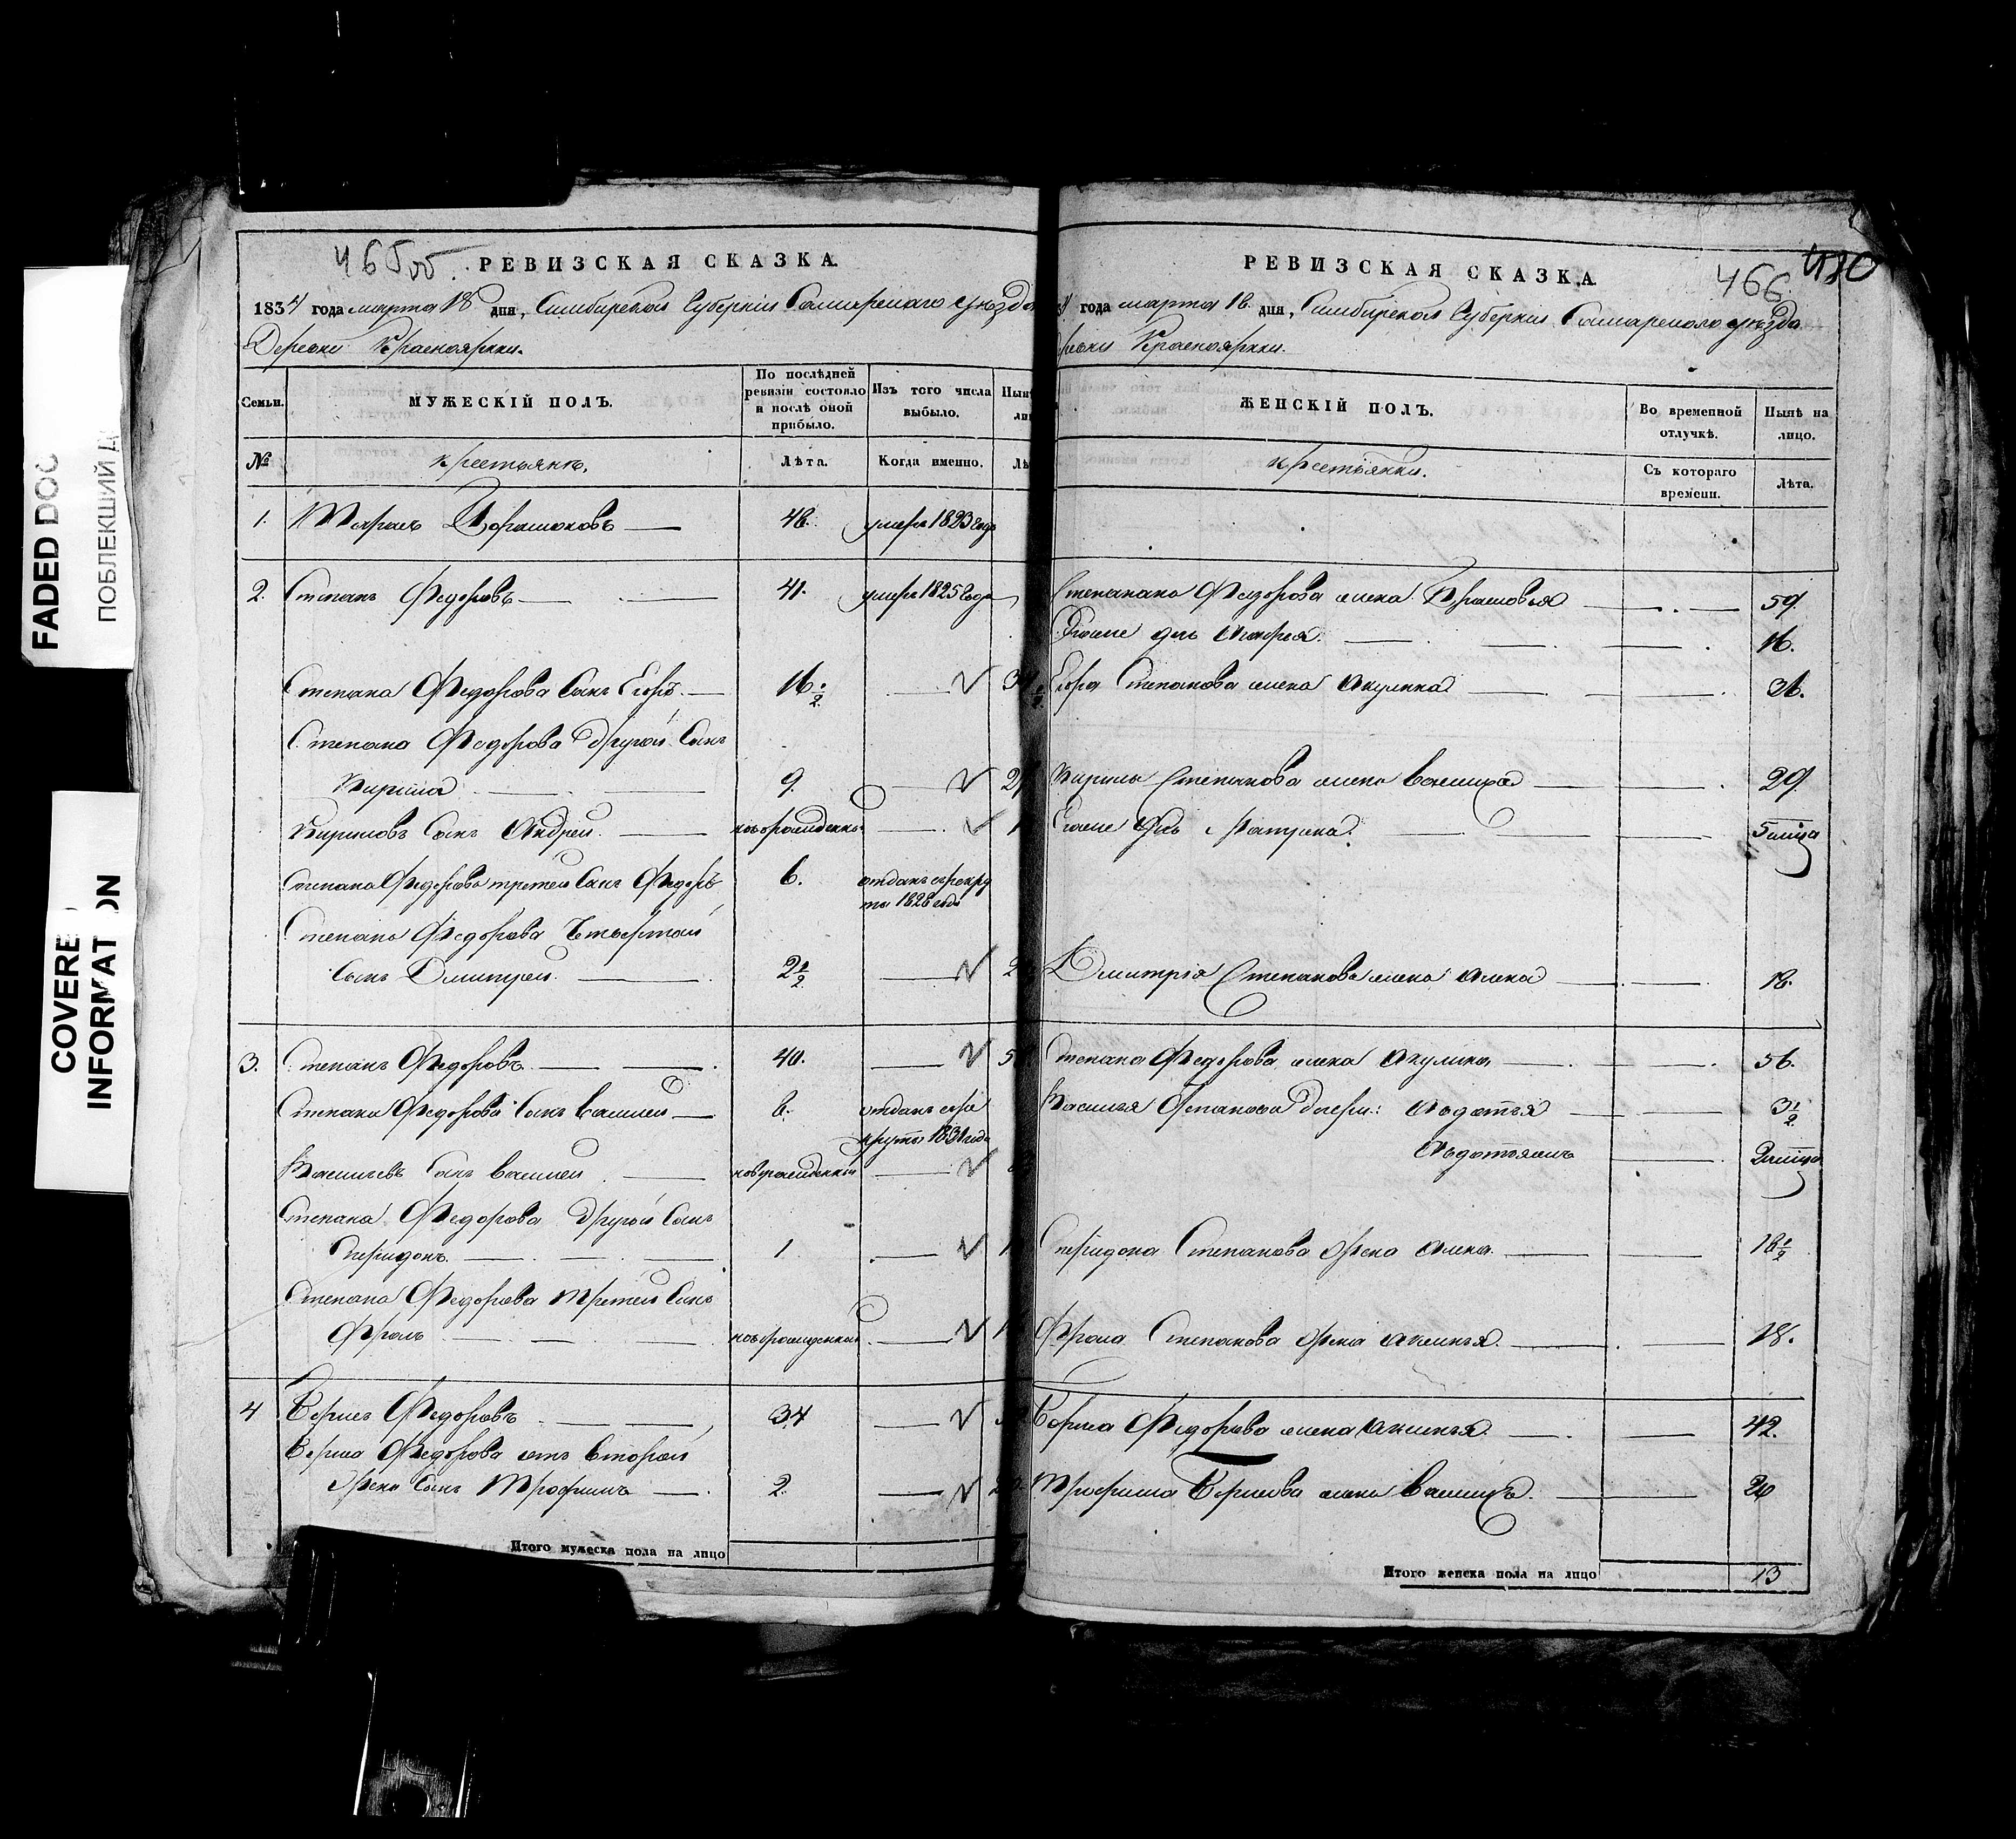 FADED DOC
ПОБЛЕКШИЙ Д
COVERE
INFORMAT ON
465об.
РЕВИЗСКАЯ СКАЗКА.
1834 года марта 18 дня, Симбирской Губернии Самарскаго уезда
Деревни Красноярки.
Семьи.
МУЖЕСКІЙ ПОЛЪ.
По послѣдней ревизіи состояло и послѣ оной прибыло.
Изъ того числа выбыло.
№
крестьянъ.
Лѣта.
Когда именно.
1.
48.
умеръ 1823 года
2. Степанъ Федоровъ 41. умеръ 1825 года
Степана Федорова сынъ Егоръ 16 1/2
Степана Федорова другой сынъ
Кирила 9.
Кириловъ сынъ Андрей новорожденный
Степана Федорова третей сынъ Федоръ 6. отданъ в рекру
ты 1828 года
Степана Федорова четвертой
сынъ Дмитрей 2 1/2
3. Степанъ Федоровъ 40.
Степана Федорова сынъ Василей 8. отданъ в ре
круты 1831 года
Васильевъ сынъ Василей новорожденный
Степана Федорова другой сынъ
Спиридонъ 1.
Степана Федорова третей сынъ
Фролъ новорожденный
4 Борисъ Федоровъ 34
Бориса Федорова отъ второй
жены сынъ Трофимъ 2.
Итого мужеска пола на лицо
466.
480
РЕВИЗСКАЯ СКАЗКА.
года марта 18 дня, Симбирской Губернии Самарскаго уезда
Красноярки.
ЖЕНСКІЙ ПОЛЪ.
Во временной отлучкѣ.
Нынѣ на лицо.
крестьянки.
Съ котораго времени.
Лѣта.
Степана Федорова жена Прасковья 59.
дчь 16.
Егора Степанова жена Акулина 36.
Кирилы Степанова жена Василиса 29.
Его же дчь 5 мѣца
Дмитрія Степанова жена Алена 18.
Степана Федорова жена Акулина 56.
Василья Степанова дочери: Авдотья 3 1/2
2 мѣца
Спиридона Степанова жена Алена 18 1/2
Фрола Степанова жена Аксинья 18.
Бориса Федорова жена Аксинья 42.
Трофима Борисова жена Василиса 20
Итого женска пола на лицо 13